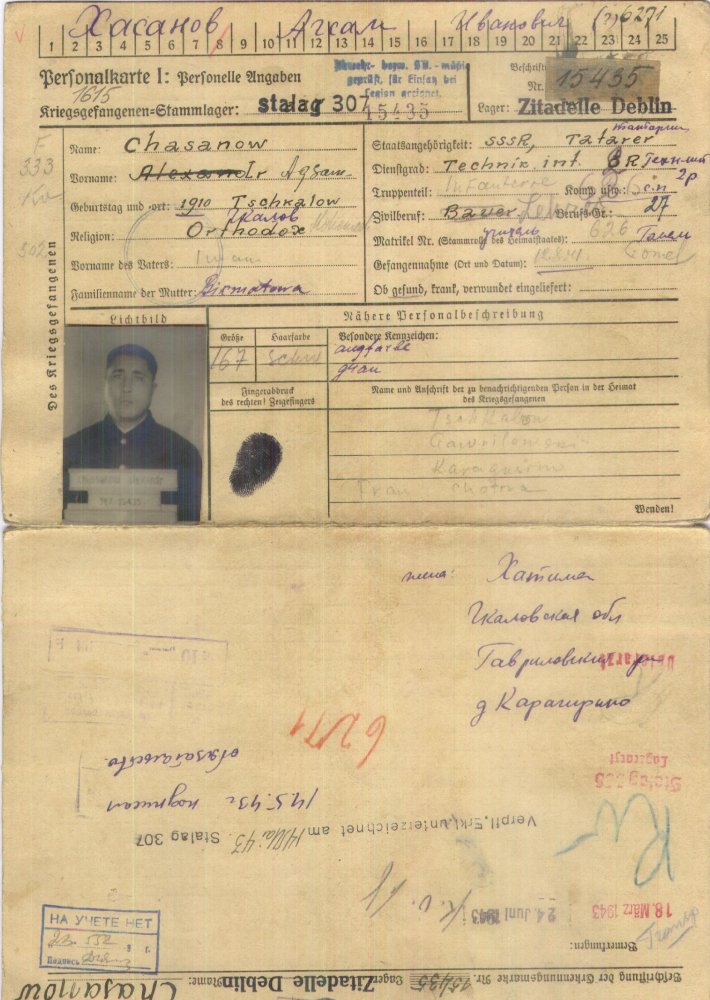 Хасанов Агсам Иванович (?) 6271
1 2 3 4 5 6 7 8 9 10 11 12 13 14 15 16 17 18 19 20 21 22 23 24 25
Personalkarte I: Personelle Angaben
1615
Kriegsgefangenen-Stammlager: stalag 307 15435
Abwehr- bezw. SD.-mäßig
geprüft, für Einsatz bei
Legion geeignet.
Nr. 15435
Lager: Zitadelle Deblin
F
333
Des Kriegsgefangenen
Name: Chasanow
Vorname: Alexandr Agsam
Geburtstag und -ort: 1910 Tschkalow
Чкалов
Religion: Orthodox
Vorname des Vaters: Iwan
Familienname der Mutter: Bikmatowa
Staatsangehörigkeit: SSSR, Tatarer татарин
Dienstgrad: Technik. int. 2R
Truppenteil: Infanterie Komp. usw.: с.п.
Zivilberuf: Bauer Lehrer Berufs-Gr.: 27
учитель
Matrikel Nr. (Stammrolle des Heimatstaates): 626
Gefangennahme (Ort und Datum): 12.8.41 Gomel
Ob gesund, krank, verwundet eingeliefert:
Lichtbild
Nähere Personalbeschreibung
Größe Haarfarbe Besondere Kennzeichen:
167 schw augfarbe
grau
Fingerabdruck
des rechten! Zeigefingers
Name und Anschrift der zu benachrichtigenden Person in der Heimat
des Kriegsgefangenen
Tschkalow
Gawrilowski
Frau
Wenden!
жена: Хатима
Чкаловская обл
Гавриловский р-
д Карагирино
Lagerarzt
6271
обязательство.
14.5.43г подписал
Verpfl. Erkl. unterzeichnet am 14. Mai 43. Stalag 307
24. Juni 1943
18. März 1943
Transp
Bemerkungen:
НА УЧЕТЕ НЕТ
Подпись
Beschriftung der Erkennungsmarke Nr. 15435 Lager: Zitadelle Deblin Name: Chasanow